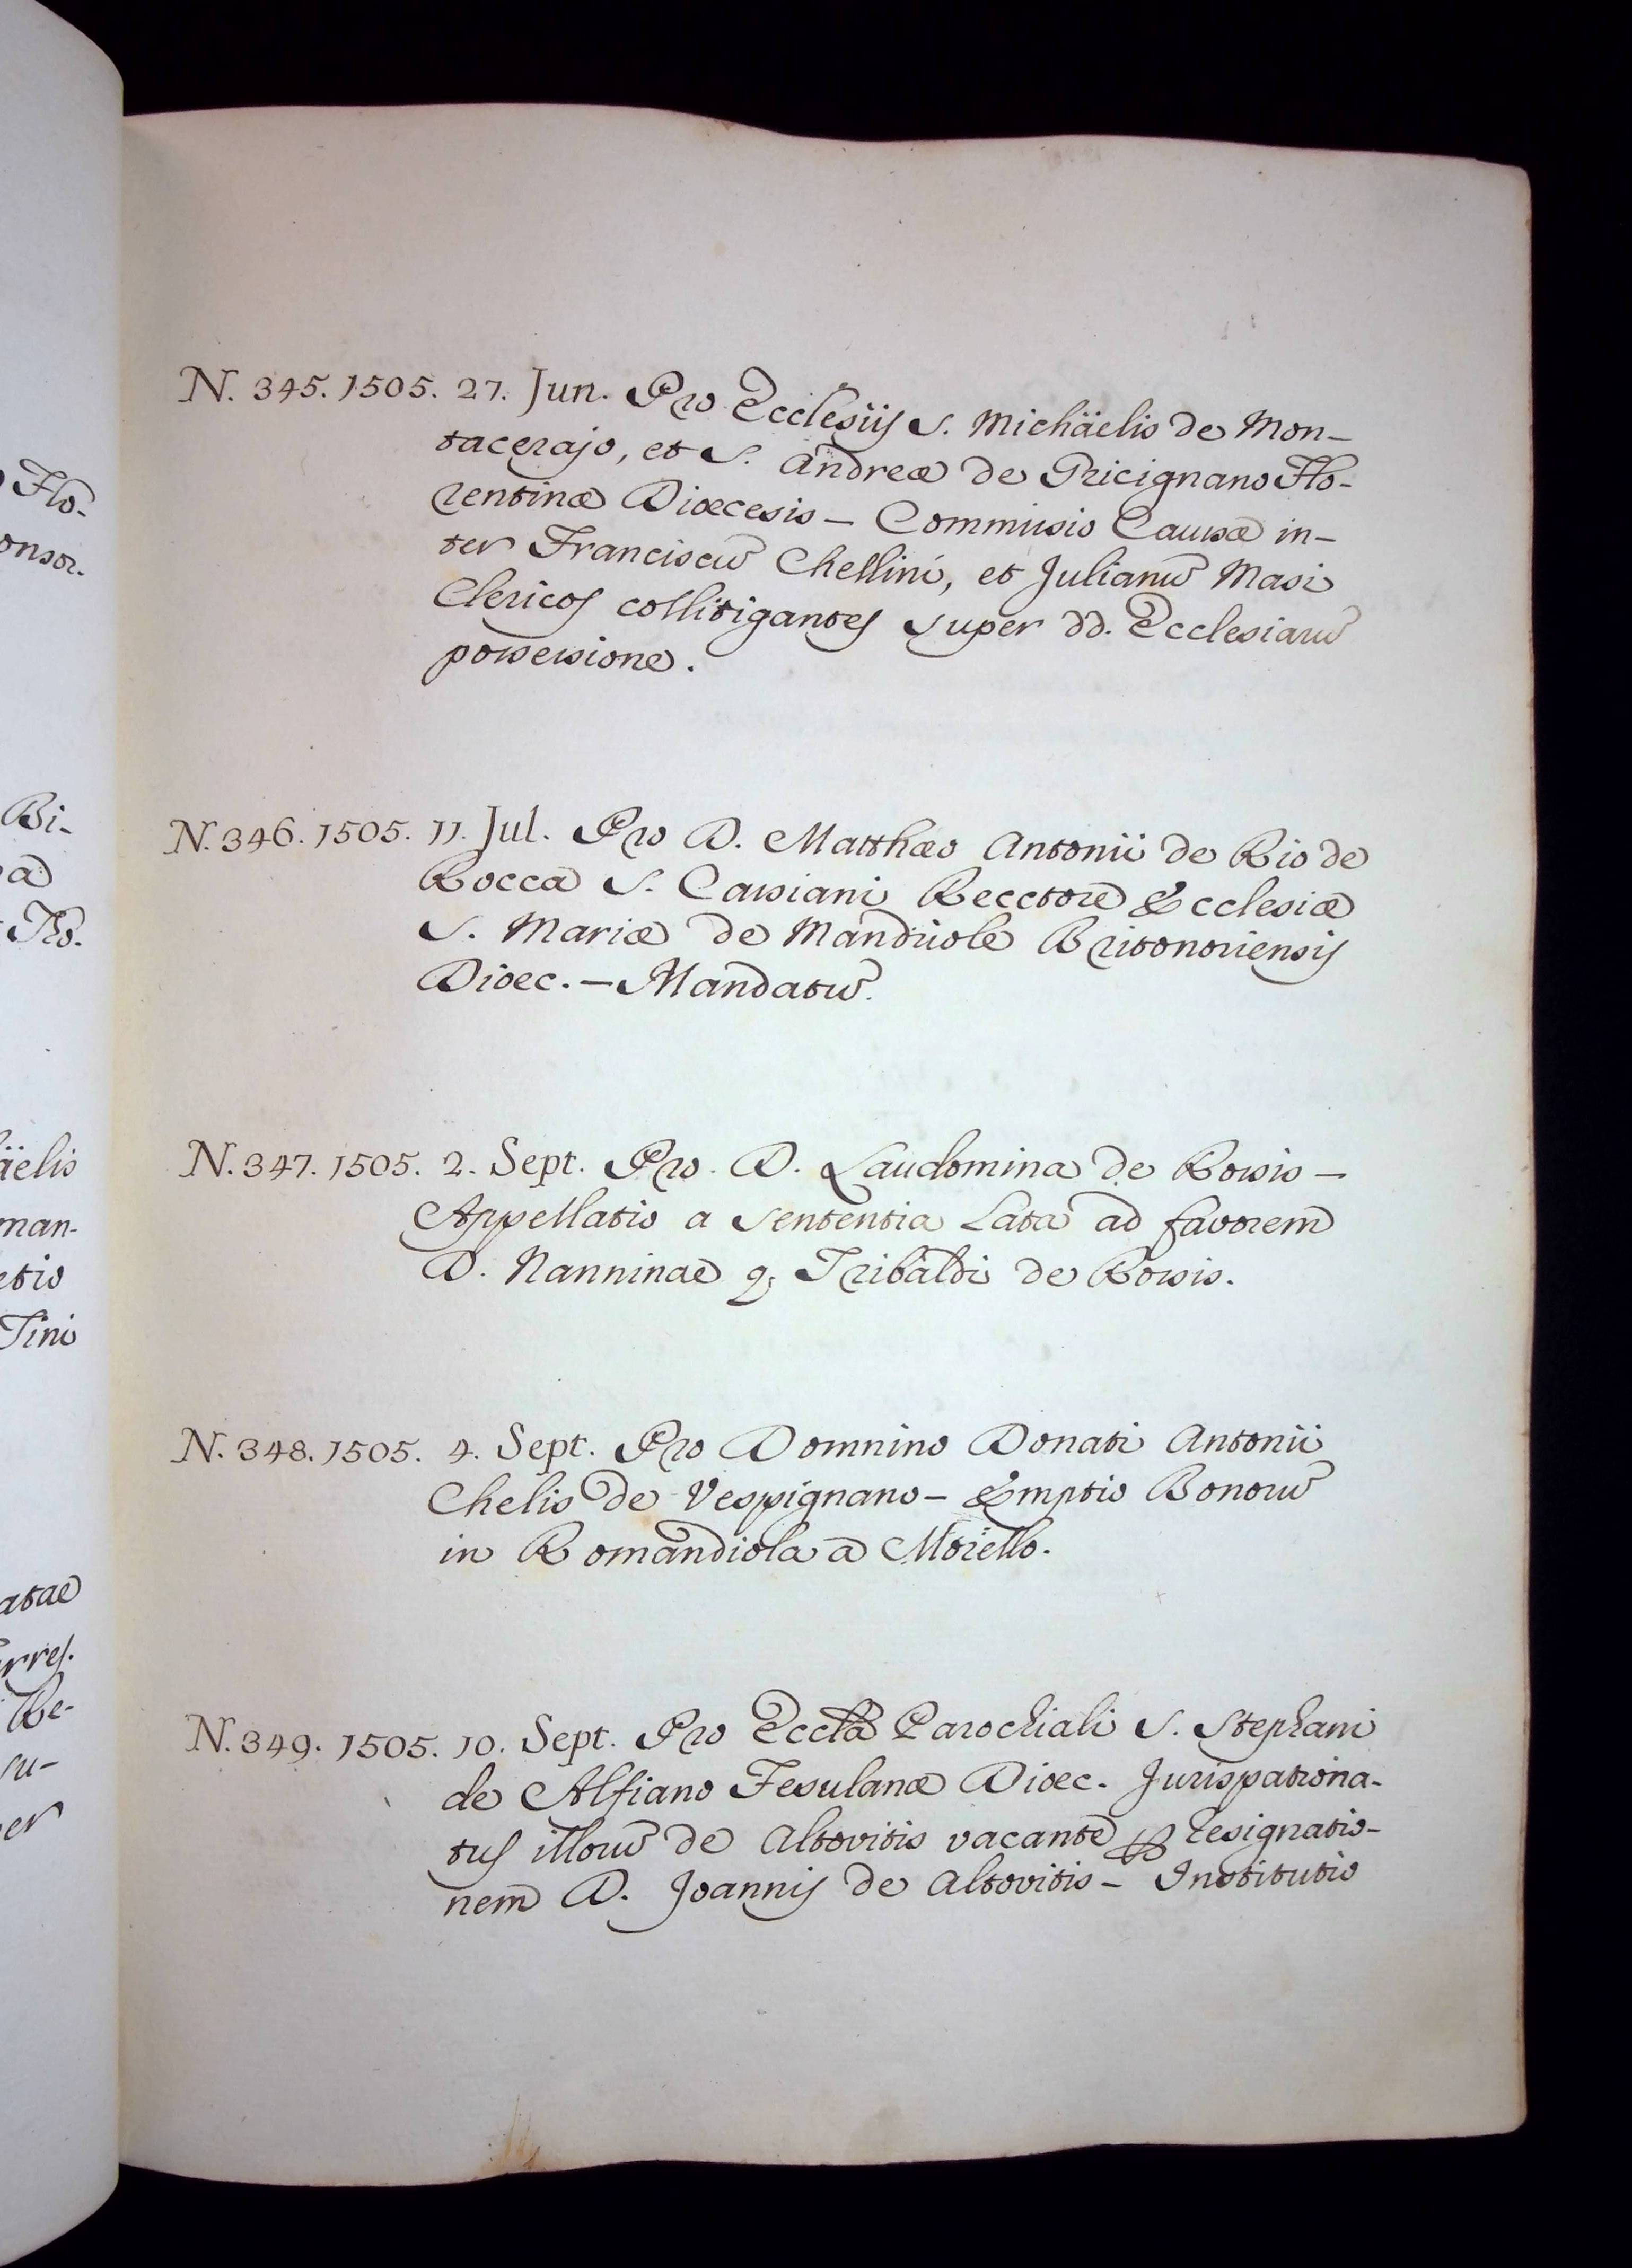 Flo-
onsor.
Bi-
a
Flo.
äelis
man-
etio
Tini
atae
erres.
Re-
su-
er
N. 345. 1505. 27. Jun. Pro Ecclesiis S. Michäelis de Mon-
tacerajo, et S. Andreæ de Pricignano Flo-
rentinæ Diœcesis - Commissio Causæ in-
ter Franciscũ Chellini, et Julianũ Masi
Clericos collitigantes super dd. Ecclesiarũ
possessione.
N. 346. 1505. 11. Jul. Pro D. Matthæo Antonii de Rio de
Rocca S. Cassiani Recctore Ecclesiæ
S. Mariæ de Mandriole Britonoriensis
Dioec. - Mandatũ.
N. 347. 1505. 2. Sept. Pro. D. Laudomina de Rossis -
Appellatio a sententia Lata ad favorem
D. Nanninae q. Tribaldi de Rossis.
N. 348. 1505. 4. Sept. Pro Domnino Donati Antonii
Chelis de Vespignano - Emptio Bonorũ
in Romandiola a Moiello.
N. 349. 1505. 10. Sept. Pro Eccla Parochiali S. Stephani
de Alfiano Fesulanæ Dioec. Jurispatrona-
tus illorũ de Altovitis vacante ꝑ resignatio-
nem D. Joannis de Altovitis - Institutio